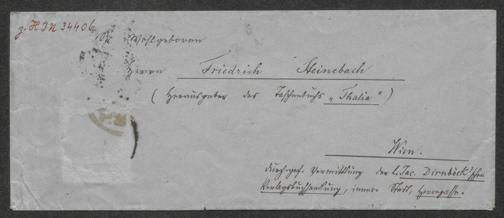 z. H.I.N. 34406
Wohlgeboren
Herrn Friedrich Steinebach
(Herausgeber des Taschenbuchs „Thalia")
Wien.
durch gef. Vermittlung der l. Jac. Dirnböck'schen
Verlagsbuchhandlung, innere Stadt, Herrngasse.